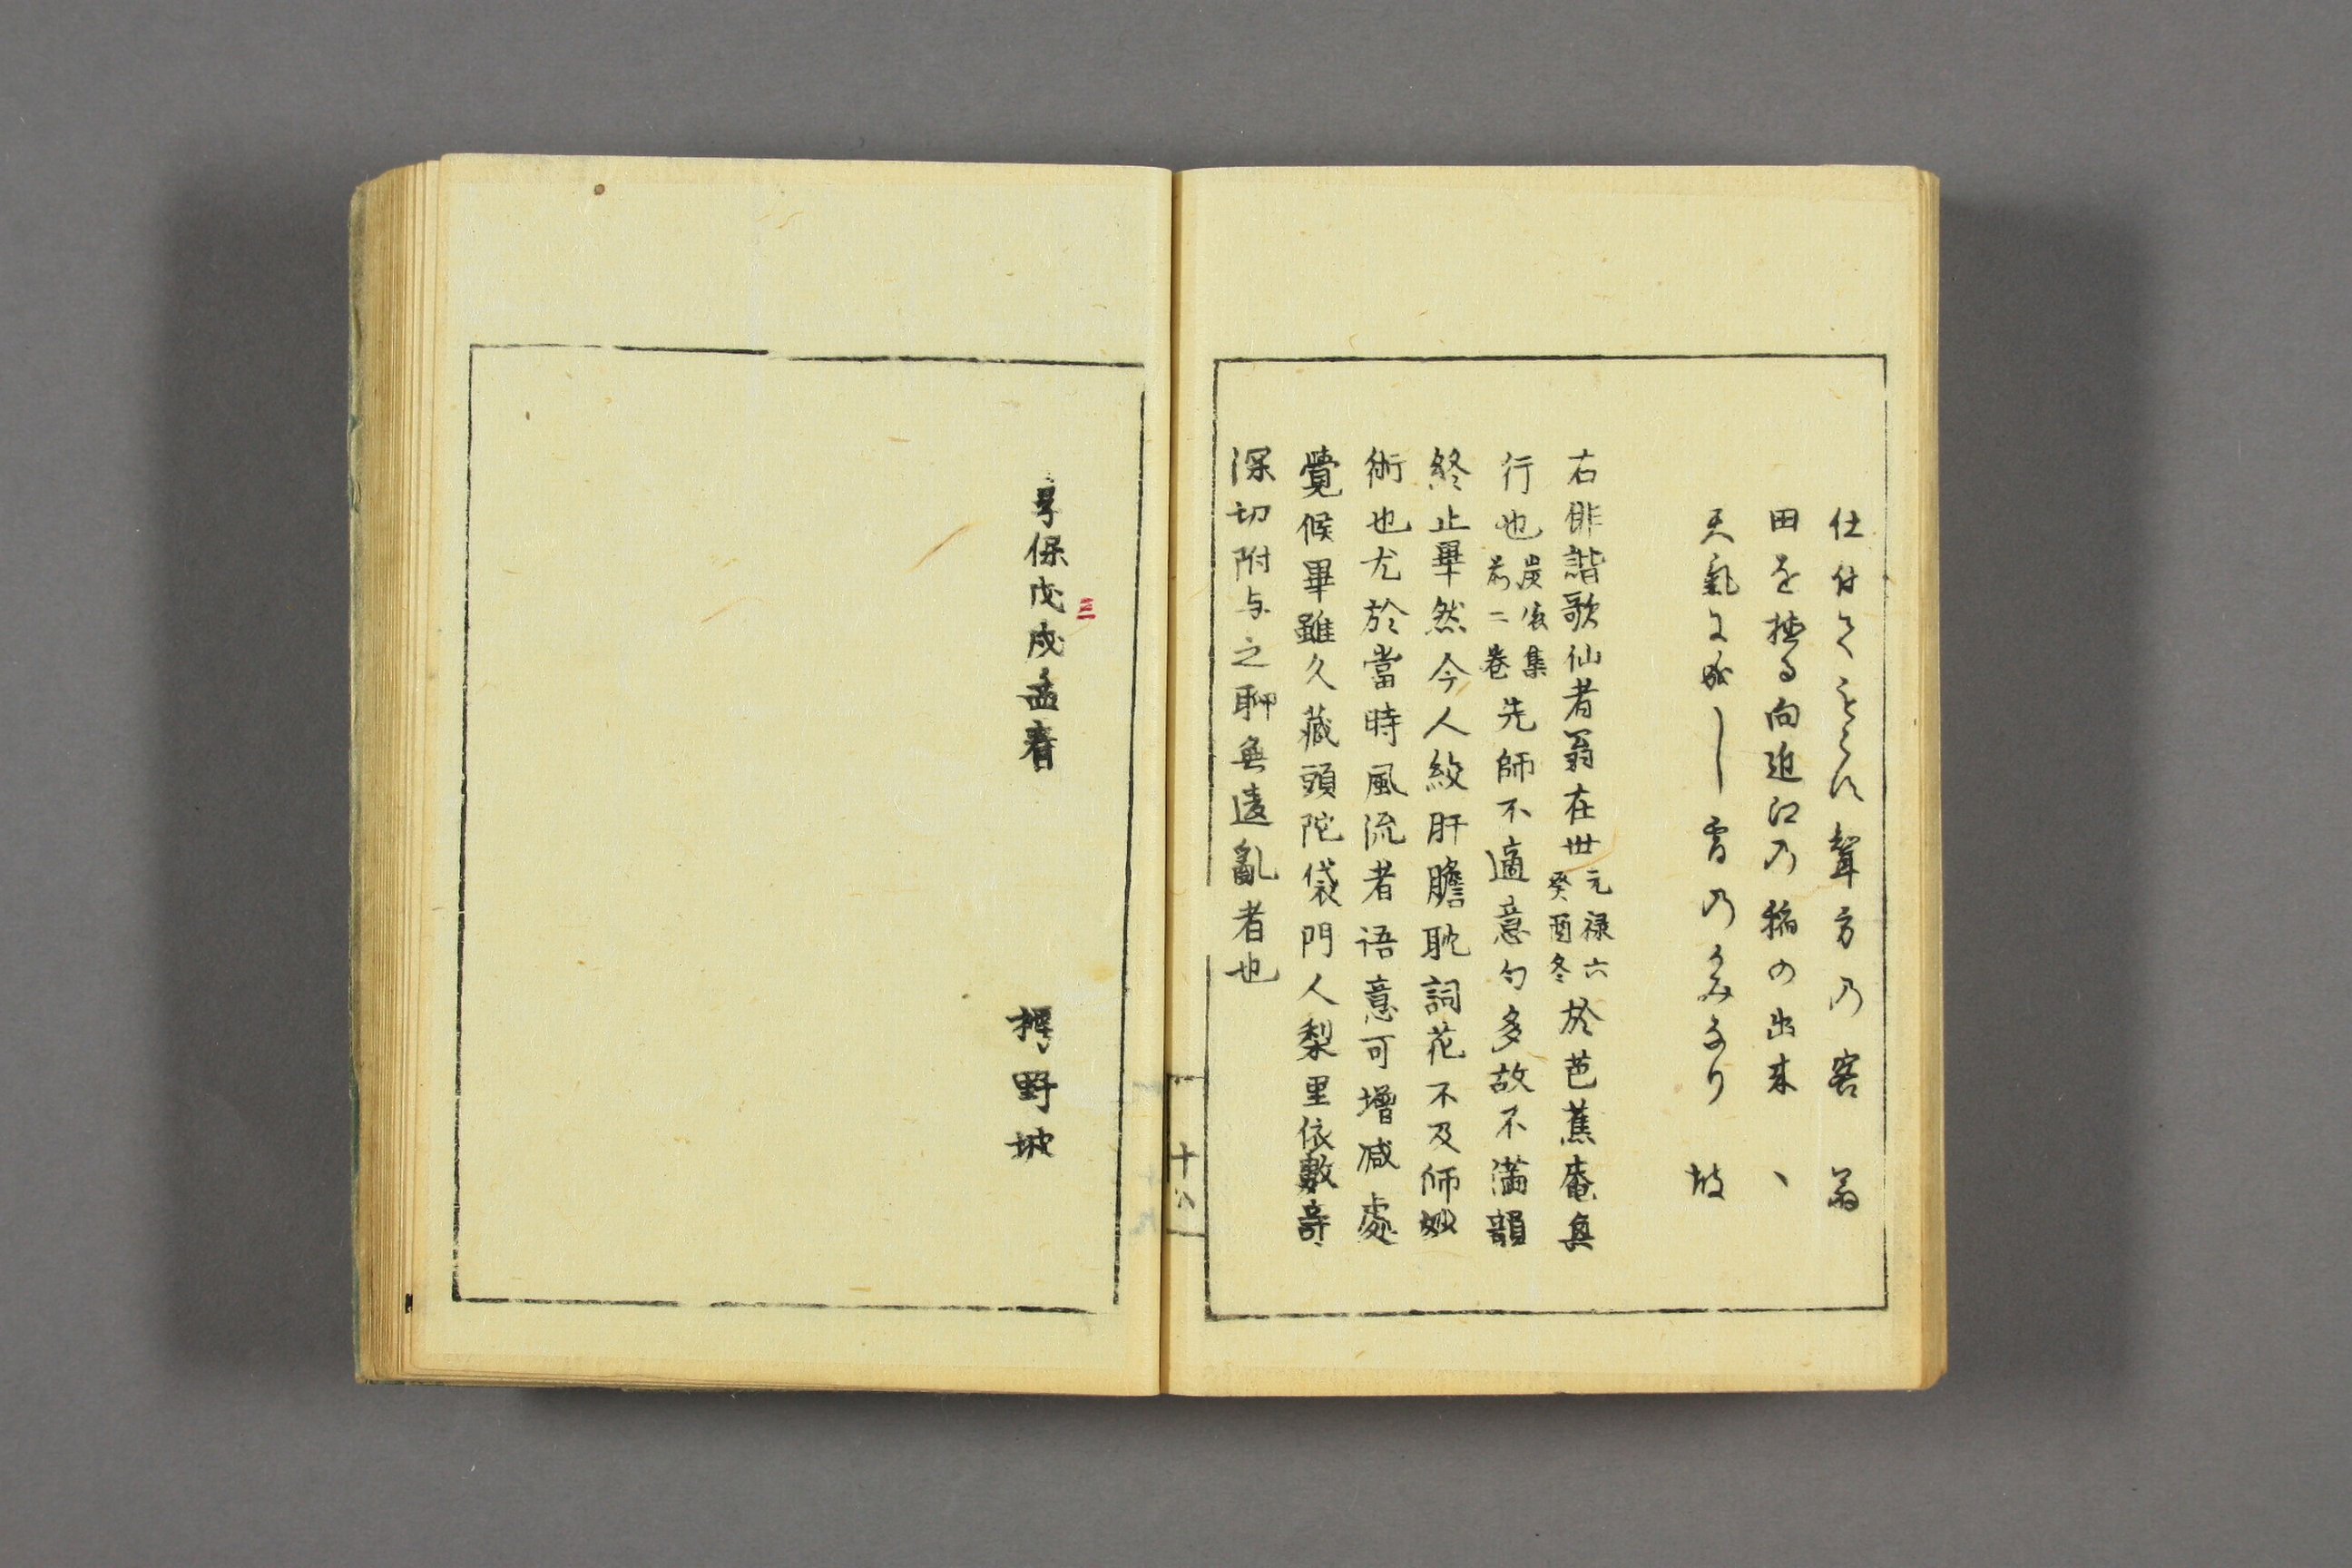 田を植る向近江の稲の出来 、
天氣に成し雪乃 なり 坡
右俳諧歌仙者翁在世元禄六癸酉冬於芭蕉庵興
行也炭俵集前二卷先師不適意句多故不満韻
終止畢然今人絞肝膽耽詞花不及師妙
術也尤於當時風流者语意可増减處
覺候畢雖久藏頭陀袋門人梨里依數奇
深切附与之聊無遠亂者也
十八
三
享保戊戌孟春
樗野坡